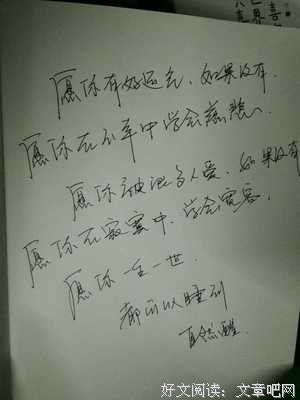 愿你有好运气，如果没有，
愿你在不幸中学会慈悲。
愿你被很多人爱，如果没有
愿你在寂寞中，学会宽容。
愿你一生一世，
都可以睡到
自然醒。
好文阅读：文章吧网